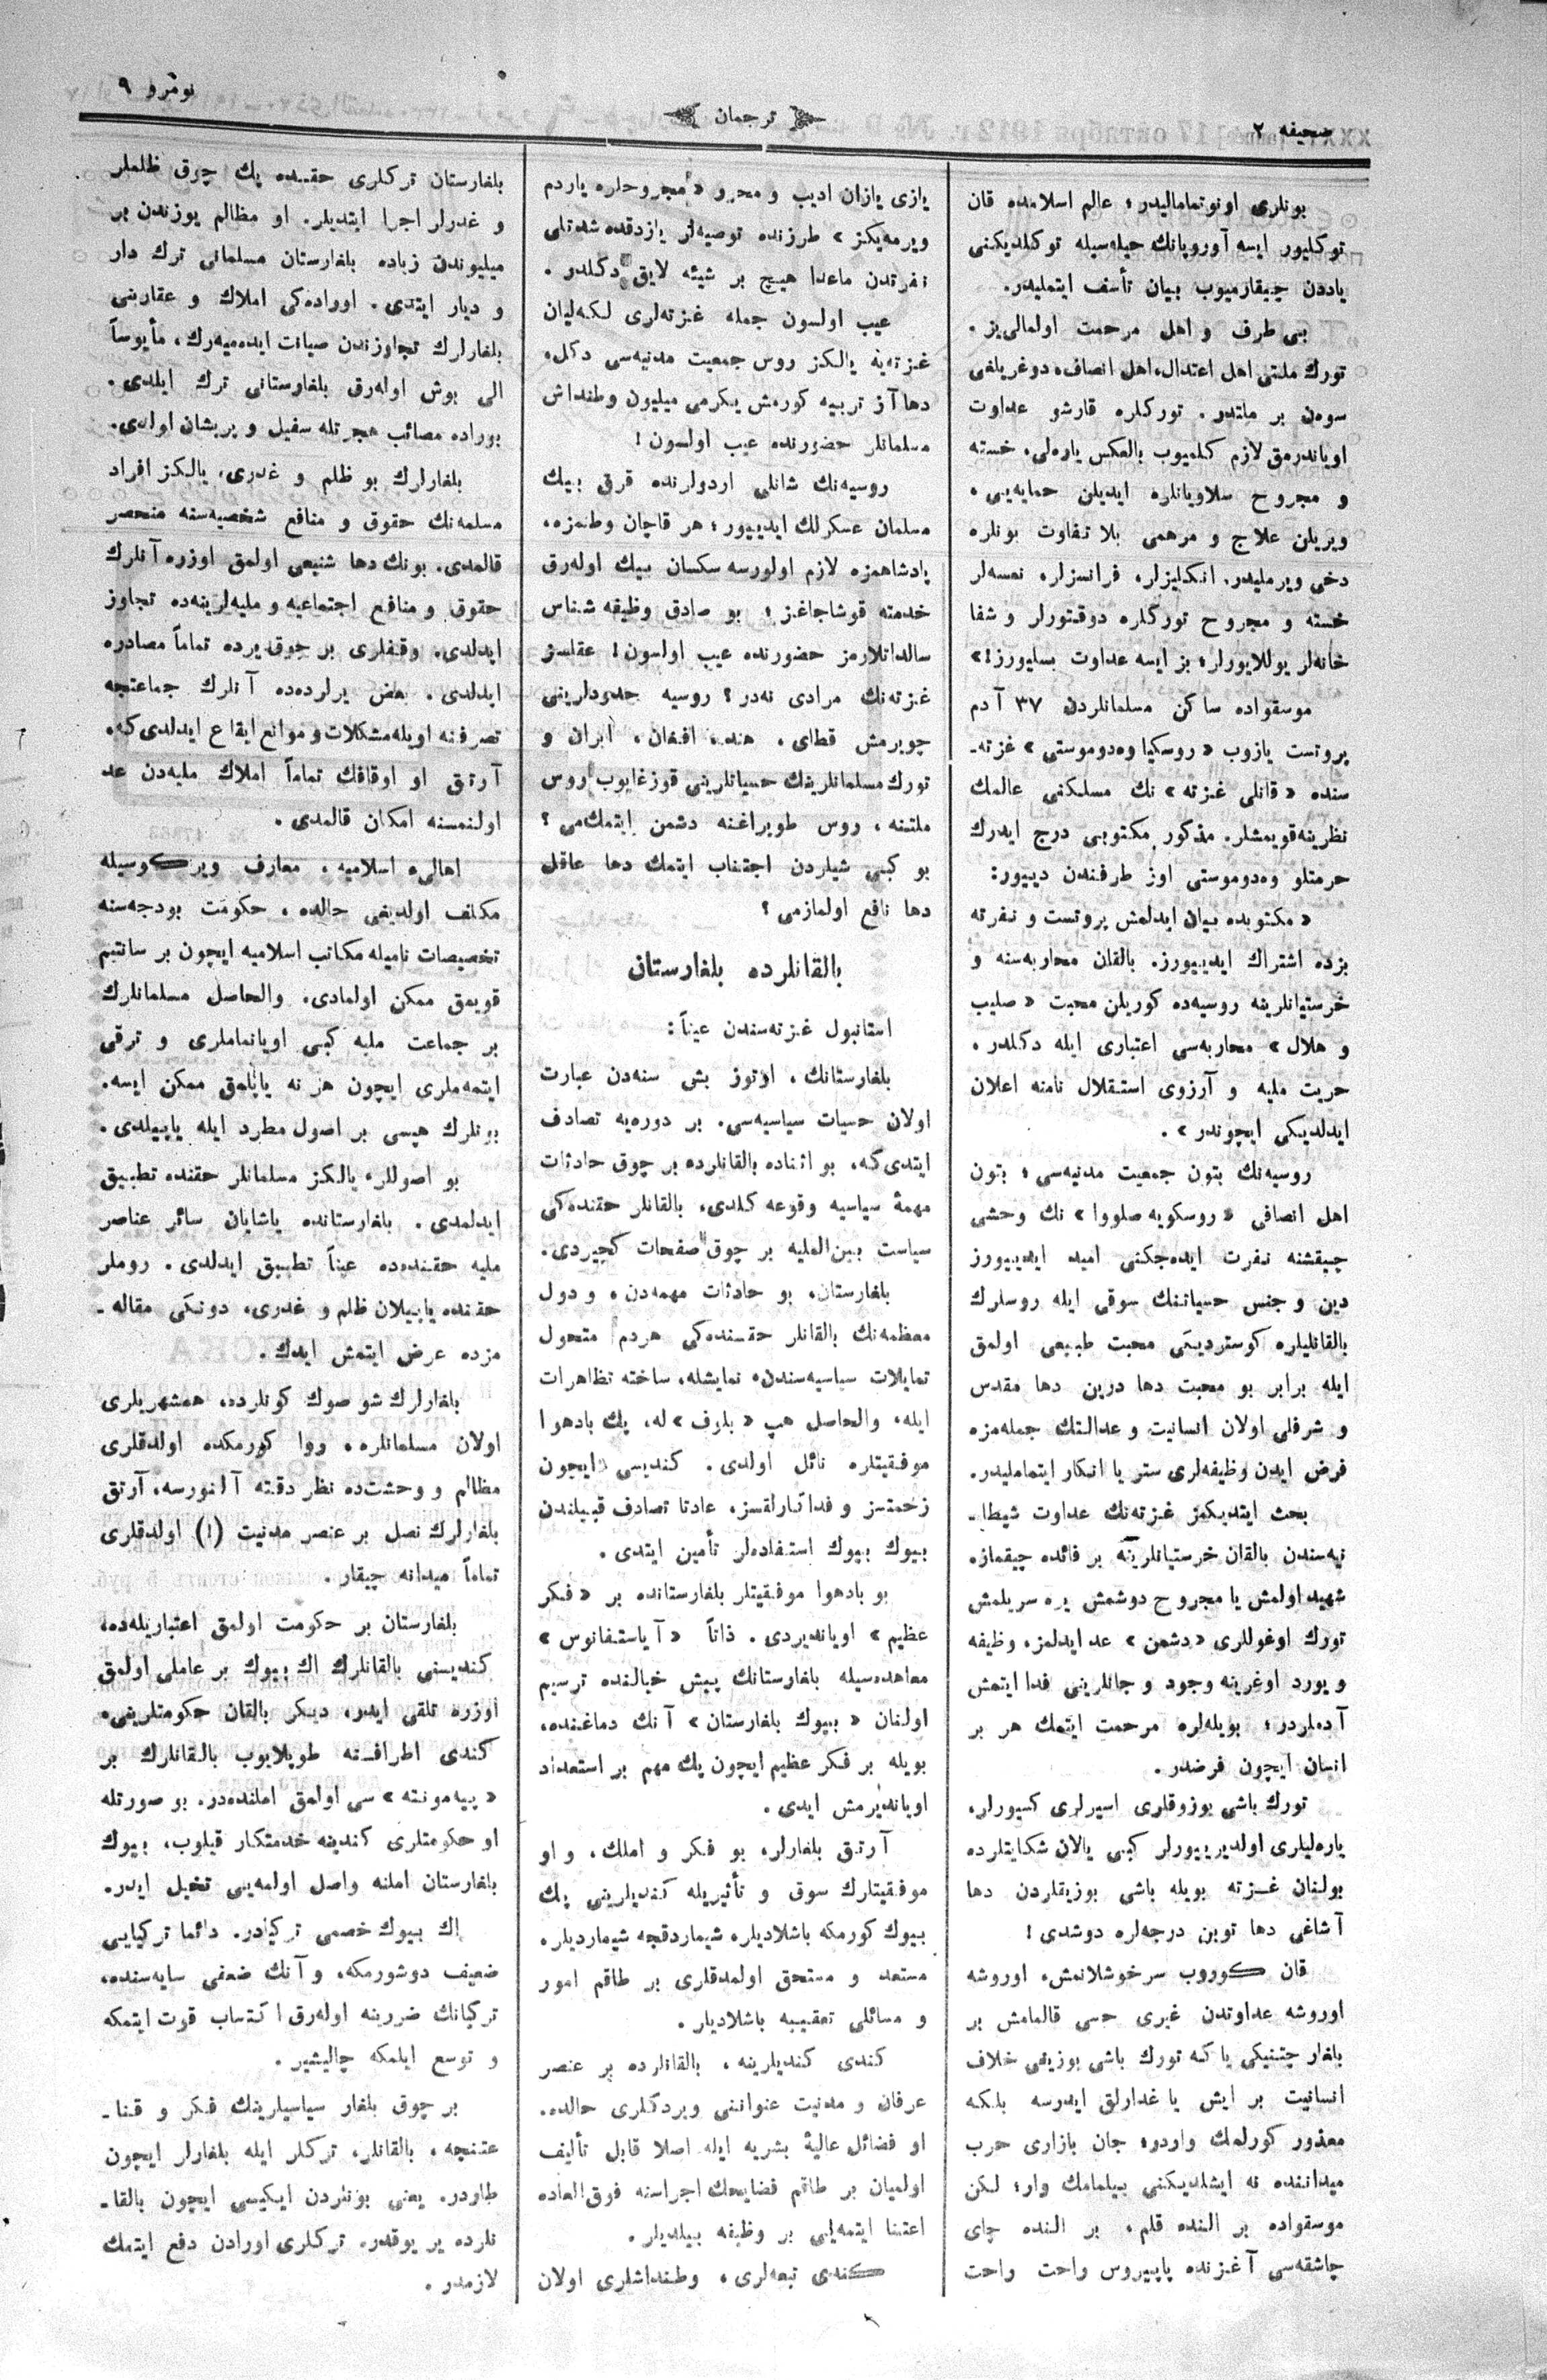 صحيفه ٢
ترجمان
نومرو ٩
بونلری اونوتمامالیدر؛ عالم اسلامده قان
توكلیور ایسه آوروپانك حیله‌سیله توكلدیكنی
یاددن چیقارمیوب بیان تأسف ایتملیدر.
بی طرف و اهل مرحمت اولمالی‌یز.
تورك ملتی اهل اعتدال، اهل انصاف، دوغریلغی
سوەن بر ملتدر. توركلره قارشو عداوت
اویاندرمق لازم كلمیوب بالعكس یاره‌لی، خسته
و مجروح سلاویانلره ایدیلن حمایه‌یی،
ویریلن علاج و مرهمی بلا تفاوت بونلره
دخی ویرملیدر. انكلیزلر، فرانسزلر، نمسه‌لر
خسته و مجروح توركلره دوقتورلر و شفا
خانه‌لر یوللایورلر؛ بز ایسه عداوت بسلیورز!»
موسقواده ساكن مسلمانلردن ٣٧ آدم
پروتست یازوب «روسكیا وەدوموستی» غزته‌ـ
سنده «قانلی غزته» نك مسلكنی عالمك
نظرینه قویمشلر. مذكور مكتوبی درج ایدرك
حرمتلو وەدوموستی اوز طرفندن دییور:
«مكتوبده بیان ایدلمش پروتست و نفرته
بزده اشتراك ایدییورز. بالقان محاربه‌سنه و
خرستیانلرینه روسیه‌ده كوریلن محبت «صلیب
و هلال» محاربه‌سی اعتباری ایله دكلدر.
حریت ملیه و آرزوی استقلال نامنه اعلان
ایدلدیكی ایچوندر».
روسیه‌نك بتون جمعیت مدنیه‌سی؛ بتون
اهل انصافی «روسكویه صلووا» نك وحشی
چیقشنه نفرت ایده‌جكنی امید ایدییورز
دین و جنس حسیاتنك سوقی ایله روسلرك
بالقانلیلره كوستردیكی محبت طبیعی اولمق
ایله برابر بو محبت دها درین دها مقدس
و شرفلی اولان انسانیت و عدالتك جمله‌مزه
فرض ایدن وظیفه‌لری ستر یا انكار ایتماملیدر.
بحث ایتدیكمز غزته‌نك عداوت شیطاـ
نیه‌سندن بالقان خرستیانلرینه بر فائده چیقمازه
شهید اولمش یا مجروح دوشمش یره سریلمش
تورك اوغوللری «دشمن» عد ایدلمز، وظیفه
و یورد اوغرینه وجود و جانلرینی فدا ایتمش
آدملردر؛ بویله‌لره مرحمت ایتمك هر بر
انسان ایچون فرضدر.
تورك باشی بوزوقلری اسیرلری كسیورلر،
یاره‌لیلری اولدیرییورلر كبی یالان شكایتلرده
بولنان غزته بویله باشی بوزیقلردن دها
آشاغی دها توبن درجه‌لره دوشدی!
قان كوروب سرخوشلانمش، اوروشه
اوروشه عداوتدن غیری حسی قالمامش بر
بلغار چتنیكی یا كه تورك باشی بوزیغی خلاف
انسانیت بر ایش یا غدارلق ایدرسه بلكه
معذور كورلمك واردر؛ جان بازاری حرب
میداننده نه ایشلدیكنی بیلمامك وار؛ لكن
موسقواده بر النده قلم، بر النده چای
چاشقه‌سی آغزنده پاپیروس واحت واحت
یازی یازان ادیب و محرر «مجروحلره یاردم
ویرمه‌یكز» طرزنده توصیه‌لر یازدقده شدتلی
نفرتدن ماعدا هیچ بر شیئه لایق دكلدر.
عیب اولسون جمله غزته‌لری لكه‌لیان
غزته‌یه یالكز روس جمعیت مدنیه‌سی دكل،
دها آز تربیه كورمش یكرمی میلیون وطنداش
مسلمانلر حضورنده عیب اولسون!
روسیه‌نك شانلی اردولرنده قرق بیك
مسلمان عسكرلك ایدییور؛ هر قاچان وطنمزه،
پادشاهمزه لازم اولورسه سكسان بیك اوله‌رق
خدمته قوشاجاغز؛ بو صادق وظیفه شناس
سالداتلارمز حضورنده عیب اولسون! عقلسز
غزته‌نك مرادی نه‌در؟ روسیه حدودلرینی
چویرمش قطای، هند، افغان، ایران و
تورك مسلمانلرینك حسیاتلرینی قوزغایوب روس
ملتنه، روس طوپراغنه دشمن ایتمك‌می؟
بو كبی شیلردن اجتناب ایتمك دها عاقل
دها نافع اولمازمی؟
بالقانلرده بلغارستان
استانبول غزته‌سندن عیناً:
بلغارستانك، اوتوز بش سنه‌دن عبارت
اولان حیات سیاسیه‌سی. بر دوره‌یه تصادف
ایتدی كه، بو اثناده بالقانلرده بر چوق حادثات
مهمهٔ سیاسیه وقوعه كلدی، بالقانلر حقنده‌كی
سیاست بین‌الملیه بر چوق صفحات كچیردی.
بلغارستان، بو حادثات مهمه‌دن، و دول
معظمه‌نك بالقانلر حقسنده‌كی هردم متحول
تمایلات سیاسیه‌سندن، نمایشله، ساخته تظاهرات
ایله، والحاصل هپ «بلوف» له، پك بادهوا
موفقیتلره نائل اولدی. كندیسی ایچون
زحمتسز و فداكارلقسز، عادتا تصادف قبیلندن
بیوك بیوك استفاده‌لر تأمین ایتدی.
بو بادهوا موفقیتلر بلغارستانده بر «فكر
عظیم» اویاندیردی. ذاتاً «آیاستفانوس»
معاهده‌سیله بلغارستانك پیش خیالنده ترسیم
اولنان «بیوك بلغارستان» آنك دماغنده،
بویله بر فكر عظیم ایچون پك مهم بر استعداد
اویاندیرمش ایدی.
آرتق بلغارلر، بو فكر و املك، و او
موفقیتلرك سوق و تأثیریله كندیلرینی پك
بیوك كورمكه باشلادیلر، شیماردقچه شیماردیلر،
مستعد و مستحق اولمدقلری بر طاقم امور
و مسائلی تعقیبه باشلادیلر.
كندی كندیلرینه، بالقانلرده بر عنصر
عرفان و مدنیت عنواننی ویردكلری حالده.
او فضائل عالیهٔ بشریه ایله اصلا قابل تألیف
اولمیان بر طاقم فضایحك اجراسنه فوق‌العاده
اعتنا ایتمه‌یی بر وظیفه بیلدیلر.
كندی تبعه‌لری، وطنداشلری اولان
بلغارستان تركلری حقنده پك چوق ظلملر
و غدرلر اجرا ایتدیلر. او مظالم یوزندن بر
میلیوندن زیاده بلغارستان مسلمانی ترك دار
و دیار ایتدی. اوراده‌كی املاك و عقارینی
بلغارلرك تجاوزندن صیانت ایده‌میه‌رك، مأیوساً
الی بوش اوله‌رق بلغارستانی ترك ایلدی.
بوراده مصائب هجرتله سفیل و پریشان اولدی.
بلغارلرك بو ظلم و غدری، یالكز افراد
مسلمه‌نك حقوق و منافع شخصیه‌سنه منحصر
قالمدی. بونك دها شنیعی اولمق اوزره آنلرك
حقوق و منافع اجتماعیه و ملیه‌لرینه‌ده تجاوز
ایدلدی. وقفلری بر چوق یرده تماماً مصادره
ایدلدی. بعض یرلرده‌ده آنلرك جماعتجه
تصرفنه اویله مشكلات و موانع ایقاع ایدلدی كه،
آرتق او اوقافك تماماً املاك ملیه‌دن عد
اولنمسنه امكان قالمدی.
اهالیء اسلامیه، معارف ویركوسیله
مكلف اولدیغی حالده، حكومت بودجه‌سنه
تخصیصات نامیله مكاتب اسلامیه ایچون بر سانتیم
قویمق ممكن اولمادی. والحاصل مسلمانلرك
بر جماعت ملیه كبی اویانماملری و ترقی
ایتمه‌ملری ایچون هر نه یاپلمق ممكن ایسه.
بونلرك هپسی بر اصول مطرد ایله یاپیلدی.
بو اصوللر، یالكز مسلمانلر حقنده تطبیق
ایدلمدی. بلغارستانده یاشایان سائر عناصر
ملیه حقنده‌ده عیناً تطبیق ایدلدی. روملر
حقنده یاپیلان ظلم و غدری، دونكی مقاله‌ـ
مزده عرض ایتمش ایدك.
بلغارلرك شو صوك كونلرده، همشهریلری
اولان مسلمانلره، روا كورمكده اولدقلری
مظالم و وحشت‌ده نظر دقته آلنورسه، آرتق
بلغارلرك نصل بر عنصر مدنیت (!) اولدقلری
تماماً میدانه چیقار.
بلغارستان بر حكومت اولمق اعتباریله‌ده،
كندیسنی بالقانلرك اك بیوك بر عاملی اولمق
اوزره تلقی ایدر، دیكر بالقان حكومتلرینی،
كندی اطرافنه طوپلایوب بالقانلرك بر
«پیه‌مونته» سی اولمق املنده‌در. بو صورتله
او حكومتلری كندینه خدمتكار قیلوب، بیوك
بلغارستان املنه واصل اولمه‌یی تخیل ایدر.
اك بیوك خصمی تركیادر. دائما تركیایی
ضعیف دوشورمكه، و آنك ضعفی سایه‌سنده،
تركیانك ضررینه اوله‌رق اكتساب قوت ایتمكه
و توسع ایلمكه چالیشیر.
بر چوق بلغار سیاسیلرینك فكر و قناـ
عتنچه، بالقانلر، تركلر ایله بلغارلر ایچون
طاردر. یعنی بونلردن ایكیسی ایچون بالقاـ
نلرده یر یوقدر. تركلری اورادن دفع ایتمك
لازمدر.